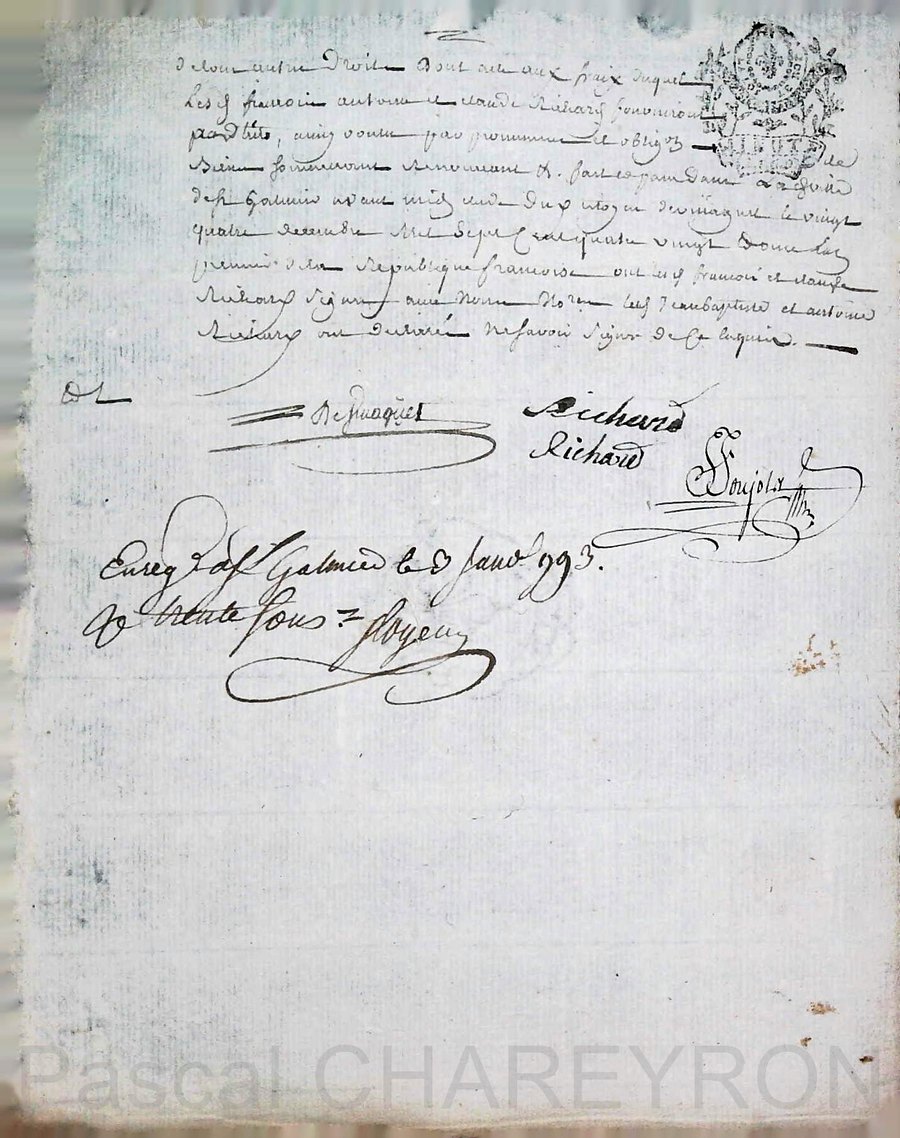 de tout autre Droit Dont acte aux frais duquel
Les Srs francois antoine et claude Richard
par dette, ainsi voulu par promesse et obligon
Biens soumissions Renonceant &. fait et passé Dans
de St Galmier avant midy Demaquet le vingt
quatre decembre Mil Sept Cent quatre vingt Douze L'an
premier de la République francoise ont les Srs francois et claude
Richard Signé avec Nous Nore les Srs Jean baptiste et antoine
Richard ont declaré Ne savoir Signer de Ce Enquis.
Demaquet Richard
Richard
Poujolz
Enreg à St Galmier le 3 Janer 1793.
R trente sous
Pascal CHAREYRON